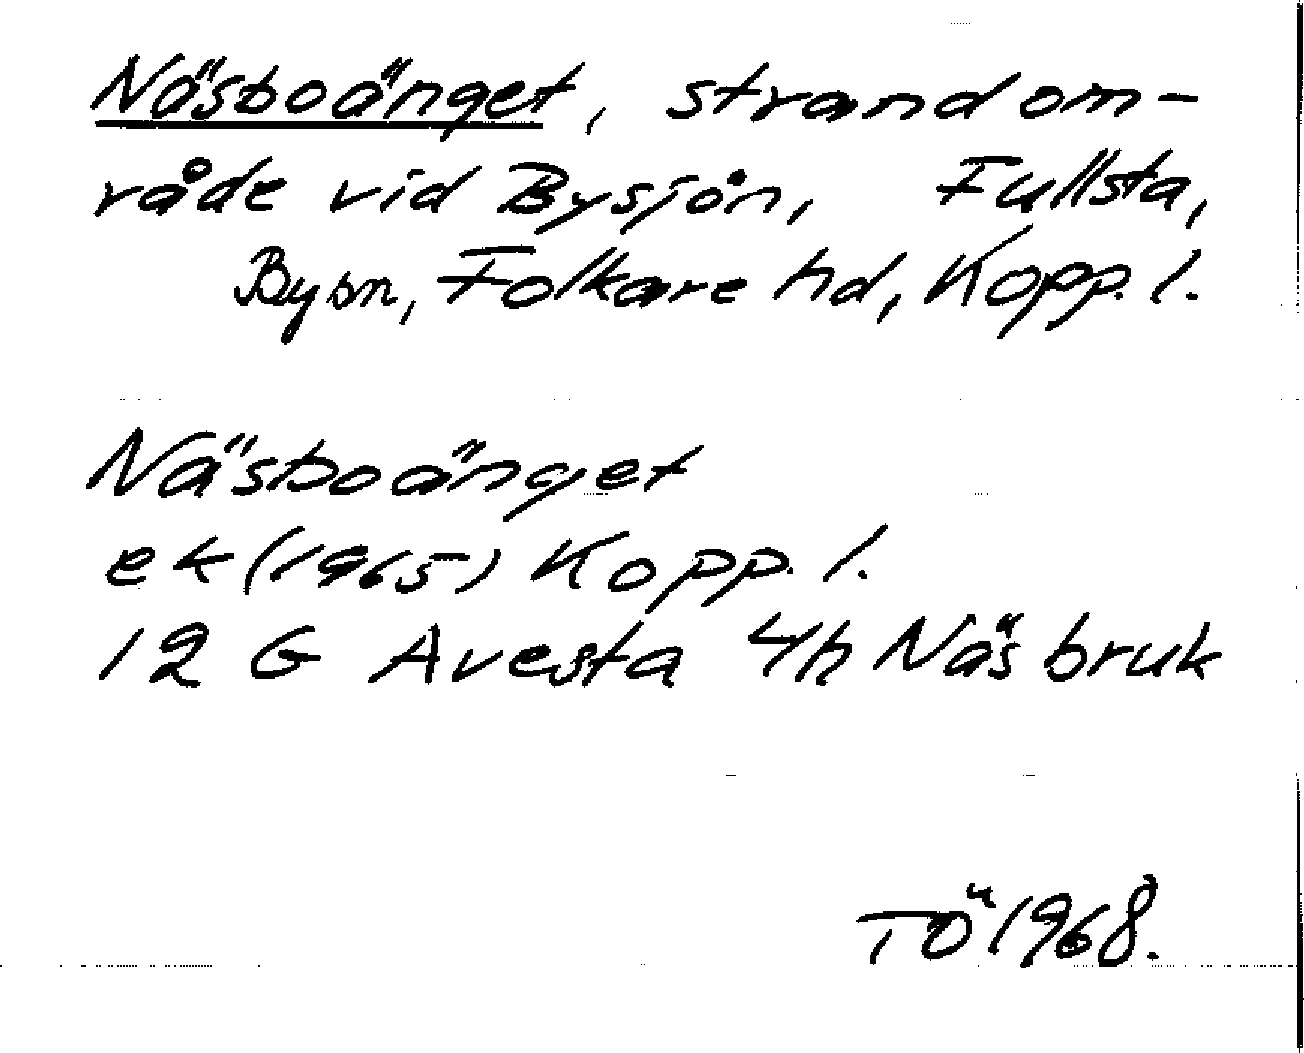 Näsboänget, strandom-
råde vid Bysjön, Fullsta,
By sn, Folkare hd, Kopp. l.
Näsboänget
ek (1965) Kopp. l.
12 G Avesta 4h Näs bruk
TÖ 1968.